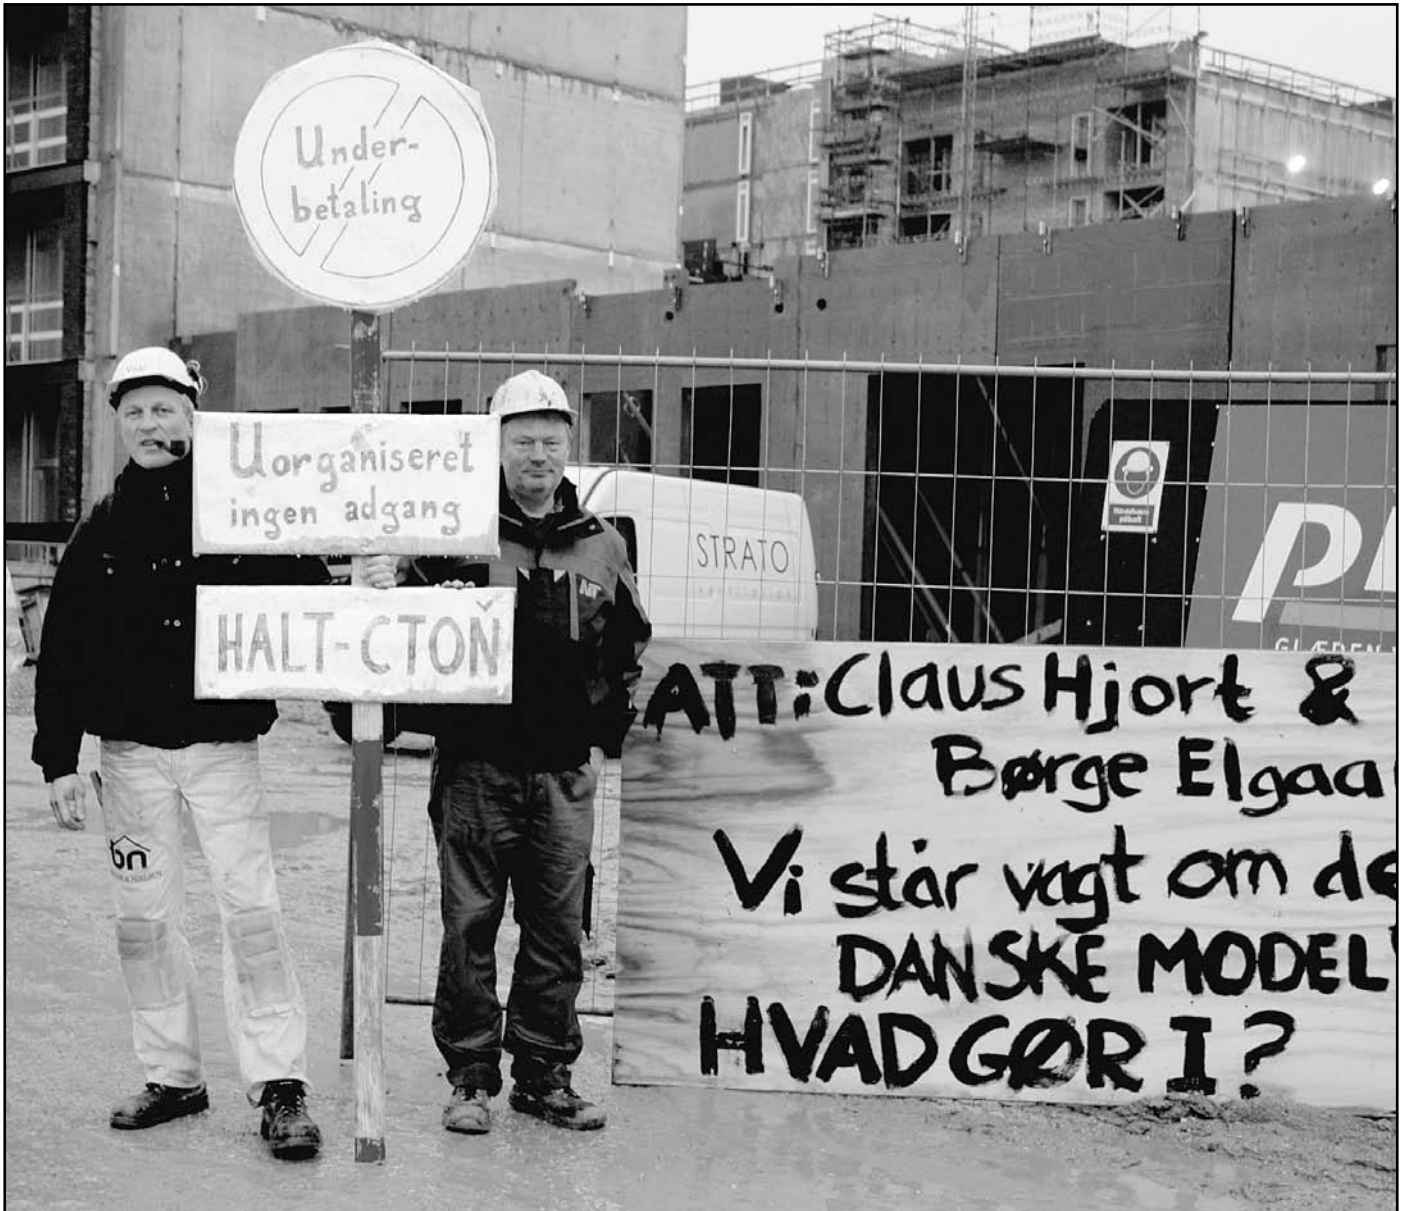 Under-
betaling
Uorganiseret
ingen adgang
HALT-CTOЙ
STRATO
ATT: Claus Hjort &
Børge Elgaa
Vi står vagt om de
DANSKE MODEL
HVAD GØR I?
bn
GLÆDEN